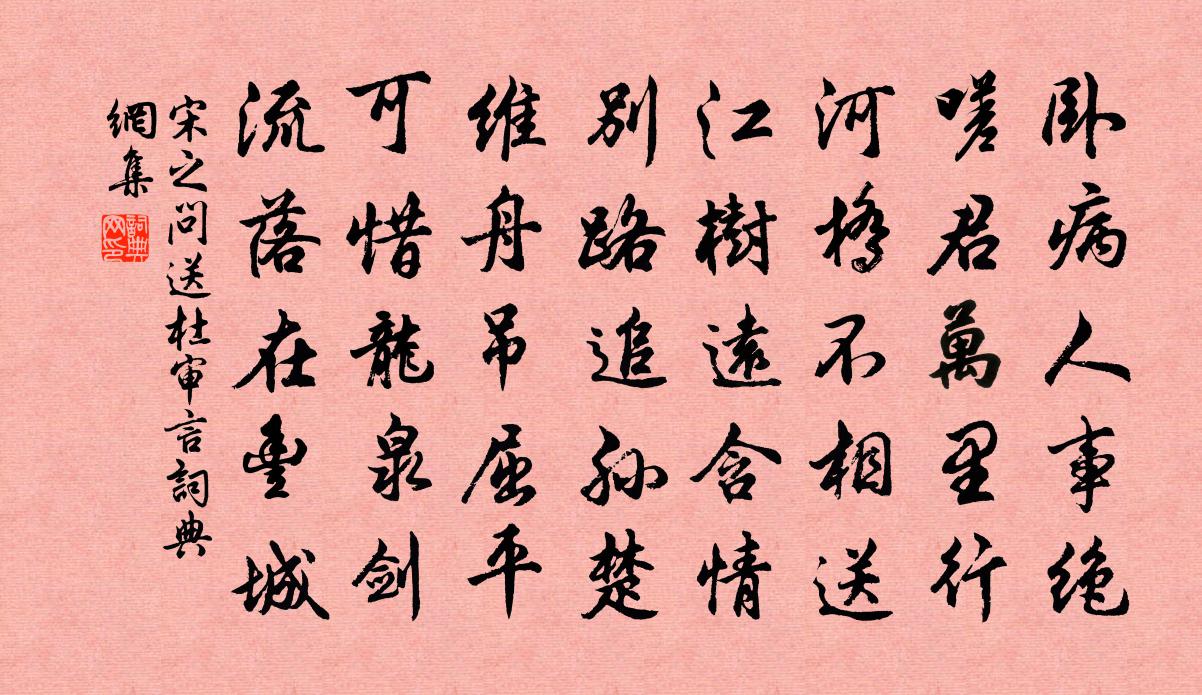 卧病人事绝
嗟君萬里行
河橋不相送
江樹遠含情
別路追孙楚
維舟吊屈平
可惜龍泉劍
流落在豐城
宋之问送杜审言詞典
網集
詞典
网印